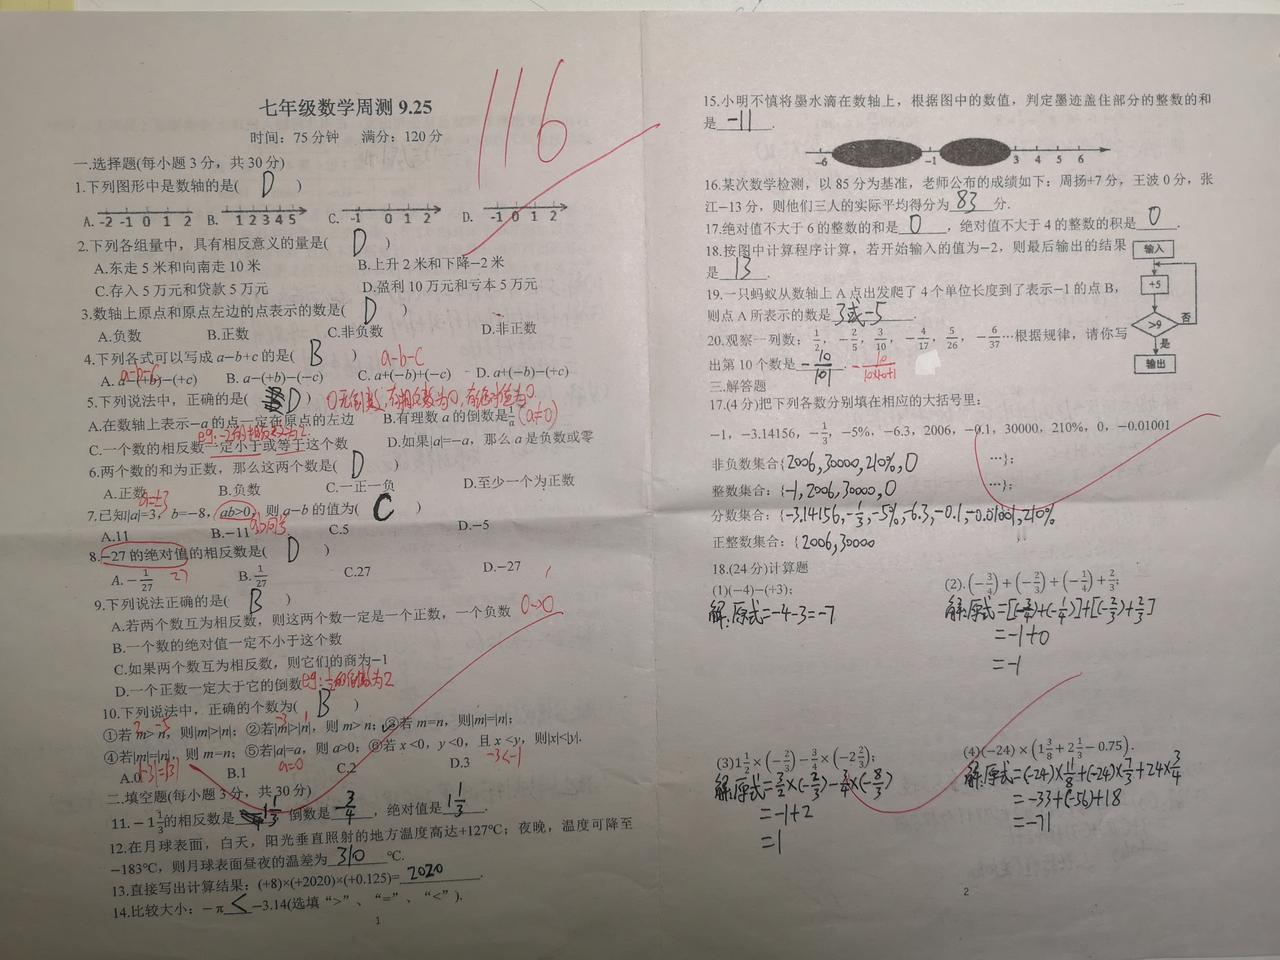 七年级数学周测 9.25
116
时间：75分钟 满分：120分
一.选择题(每小题3分，共30分)
1.下列图形中是数轴的是( D )
A. -2 -1 0 1 2 B. 1 2 3 4 5 C. -1 0 1 2 D. -1 0 1 2
2.下列各组量中，具有相反意义的量是( D )
A.东走5米和向南走10米 B.上升2米和下降−2米
C.存入5万元和贷款5万元 D.盈利10万元和亏本5万元
3.数轴上原点和原点左边的点表示的数是( D )
A.负数 B.正数 C.非负数 D.非正数
4.下列各式可以写成 a−b+c 的是( B )
a-b-c a-b-c
A. a−(+b)−(+c) B. a−(+b)−(−c) C. a+(−b)+(−c) D. a+(−b)−(+c)
5.下列说法中，正确的是( D ) 0无倒数,有相反数为0,有绝对值为0
A.在数轴上表示−a的点一定在原点的左边 B.有理数 a 的倒数是1/a (a≠0)
eg:-2的相反数为2
C.一个数的相反数一定小于或等于这个数 D.如果|a|=−a，那么 a 是负数或零
6.两个数的和为正数，那么这两个数是( D )
A.正数 B.负数 C.一正一负 D.至少一个为正数
a=±3
7.已知|a|=3，b=−8，ab>0，则 a−b 的值为( C )
ab同号
A.11 B.−11 C.5 D.−5
8.−27的绝对值的相反数是( D )
27
A. −1/27 B. 1/27 C.27 D.−27
9.下列说法正确的是( B )
A.若两个数互为相反数，则这两个数一定是一个正数，一个负数 0→0
B.一个数的绝对值一定不小于这个数
C.如果两个数互为相反数，则它们的商为−1
D.一个正数一定大于它的倒数 eg:1/2的倒数为2
10.下列说法中，正确的个数为( B )
①若 m> n，则|m|>|n|；②若|m|>|n|，则 m> n；③若 m=n，则|m|=|n|；
④若|m|=|n|，则 m=n；⑤若|a|=a，则 a>0；⑥若 x<0，y<0，且 x<y，则|x|<|y|.
|-3|=|3| a=0 -3<-1
A.0 B.1 C.2 D.3
二.填空题(每小题3分，共30分)
11.−1 1/3的相反数是 1 1/3 倒数是 -3/4 ，绝对值是 1 1/3 .
12.在月球表面，白天，阳光垂直照射的地方温度高达+127℃；夜晚，温度可降至
−183℃，则月球表面昼夜的温差为 310 ℃.
13.直接写出计算结果：(+8)×(+2020)×(+0.125)= 2020 .
14.比较大小：−π < −3.14(选填“>”、“=”、“<”).
1
15.小明不慎将墨水滴在数轴上，根据图中的数值，判定墨迹盖住部分的整数的和
是 -11 .
-6 -1 3 4 5 6
16.某次数学检测，以85分为基准，老师公布的成绩如下：周扬+7分，王波0分，张
江−13分，则他们三人的实际平均得分为 83 分.
17.绝对值不大于6的整数的和是 0 ，绝对值不大于4的整数的积是 0 .
18.按图中计算程序计算，若开始输入的值为−2，则最后输出的结果
是 13 .
输入
+5
>9 否
是
输出
19.一只蚂蚁从数轴上A点出发爬了4个单位长度到了表示−1的点B，
则点A所表示的数是 3或-5 .
20.观察一列数：1/2，−2/5，3/10，−4/17，5/26，−6/37…根据规律，请你写
出第10个数是 -10/101 . -10/10×10+1
三.解答题
17.(4分)把下列各数分别填在相应的大括号里：
−1，−3.14156，−1/3，−5%，−6.3，2006，−0.1，30000，210%，0，−0.01001
非负数集合：{2006,30000,210%,0 …}；
整数集合：{-1,2006,30000,0 …}；
分数集合：{-3.14156,-1/3,-5%,-6.3,-0.1,-0.01001,210%
正整数集合：{2006,30000
18.(24分)计算题
(1)(−4)−(+3)；
解:原式=-4-3=-7
(2).(−3/4)+(−2/3)+(−1/4)+2/3；
解:原式=[(-3/4)+(-1/4)]+[(-2/3)+2/3]
=-1+0
=-1
(3)1 1/2×(−2/3)−3/4×(−2 2/3)；
解:原式=3/2×(-2/3)-3/4×(-8/3)
=-1+2
=1
(4)(−24)×(1 3/8+2 1/3−0.75).
解:原式=(-24)×11/8+(-24)×7/3+24×3/4
=-33+(-56)+18
=-71
2